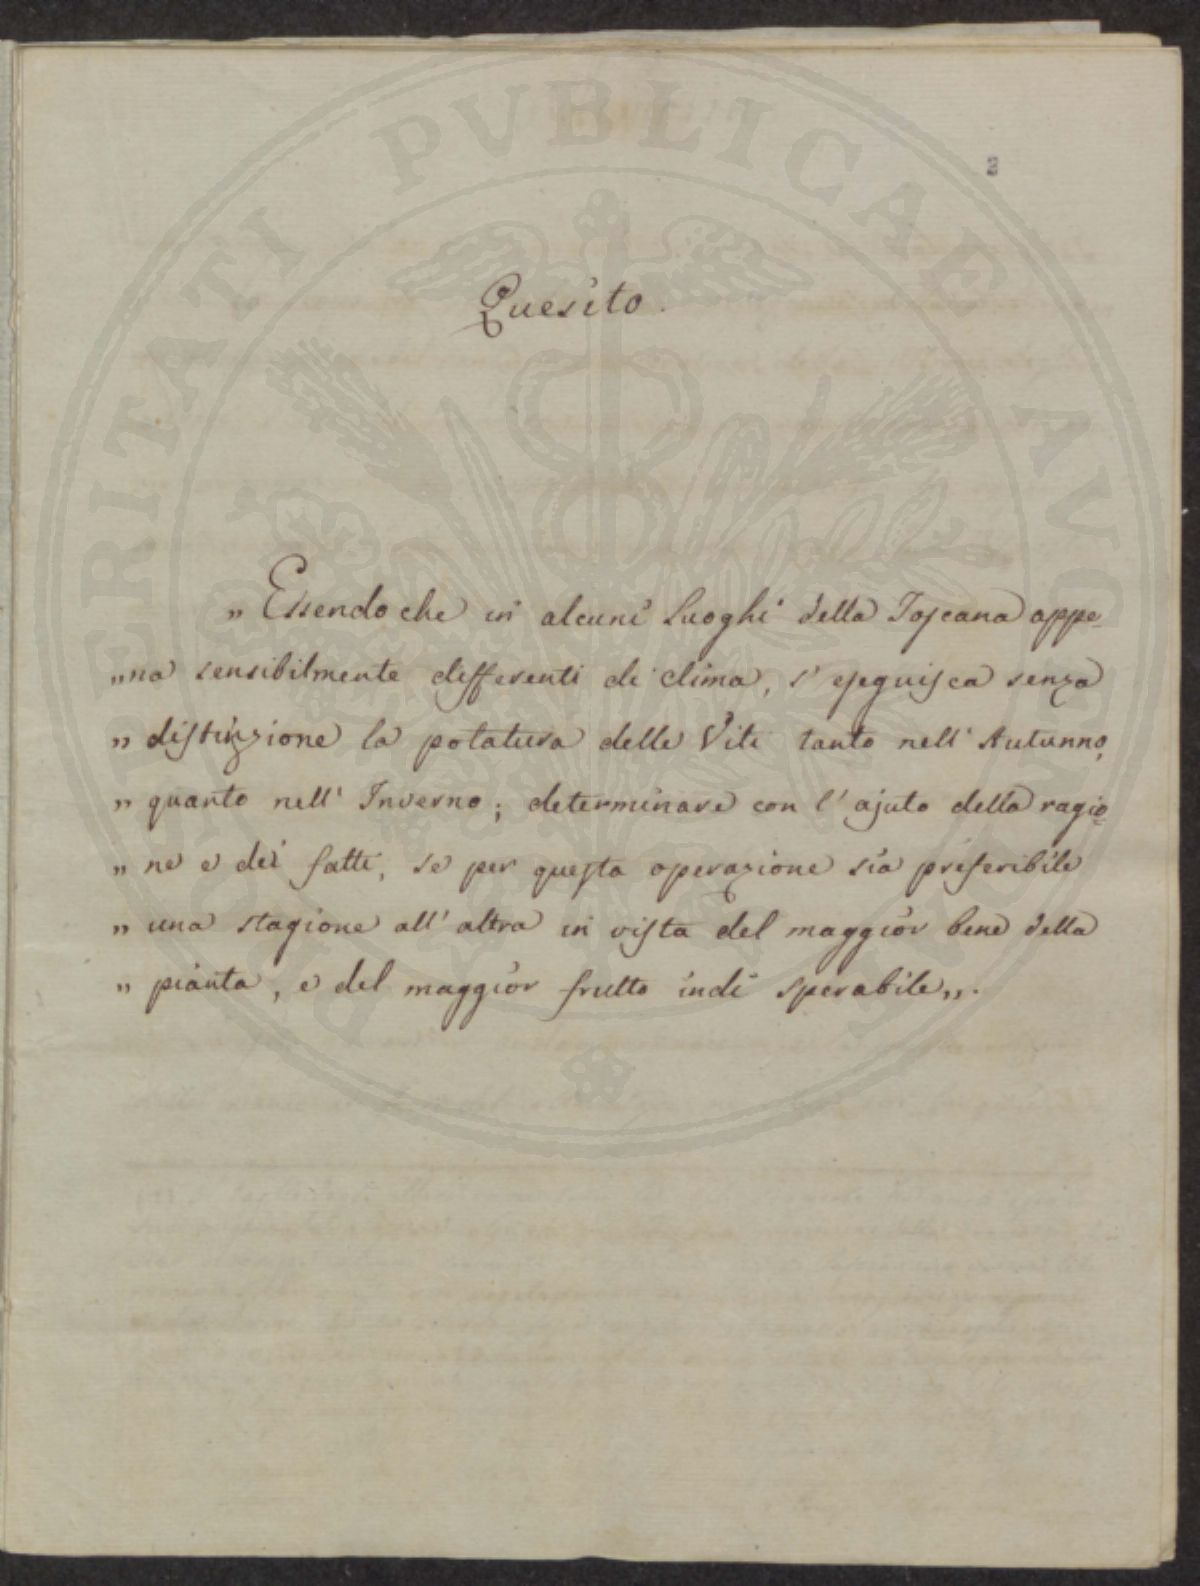 PROSPERITATI PVBLICAE AVGENDAE
2
Quesito.
„ Essendo che in alcuni Luoghi della Toscana appe=
„ na sensibilmente differenti di clima, s' eseguisca senza
„ distinzione la potatura delle Viti tanto nell' Autunno,
„ quanto nell' Inverno; determinare con l' ajuto della ragio=
„ ne e dei fatti, se per questa operazione sia preferibile
„ una stagione all' altra in vista del maggior bene della
„ pianta, e del maggior frutto indi sperabile „.